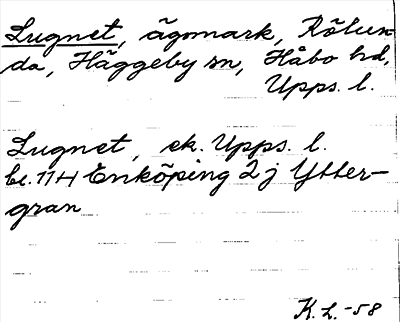 Lugnet, ägomark, Rölun-
da, Häggeby sn, Håbo hd,
Upps. l.
Lugnet, ek. Upps. l.
bl. 11H Enköping 2 j Ytter-
gran
K. L. -58